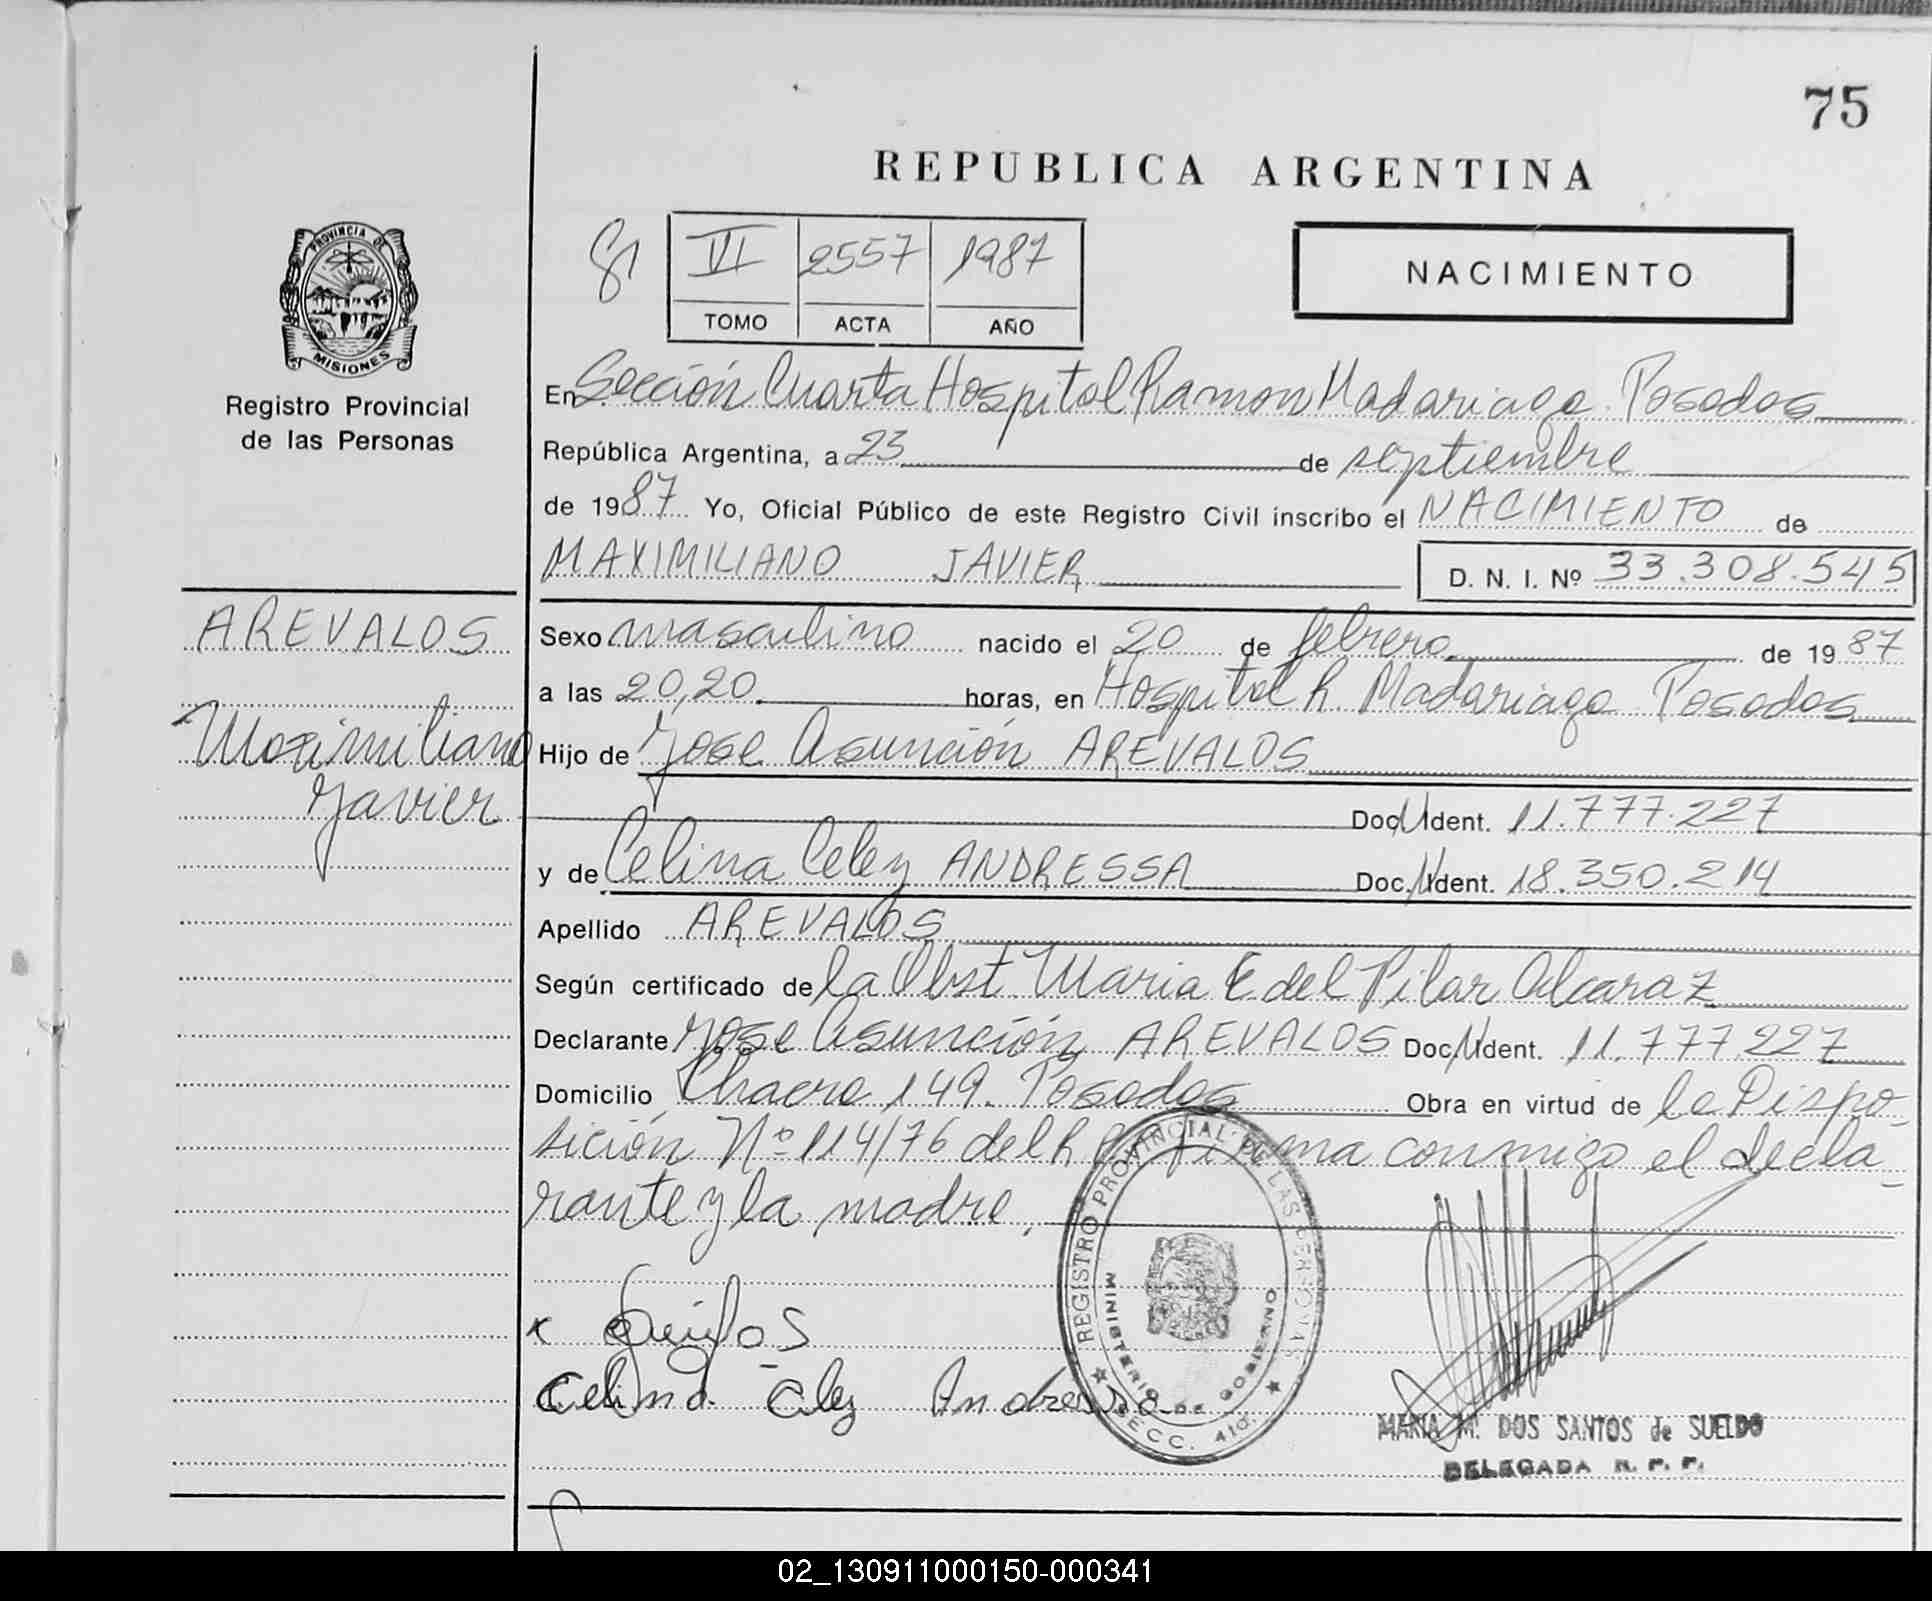 75
REPUBLICA ARGENTINA
PROVINCIA DE
MISIONES
Registro Provincial
de las Personas
VI 2557 1987
TOMO ACTA AÑO
NACIMIENTO
En Sección Cuarta Hospital Ramon Madariaga Posadas
República Argentina, a 23 de septiembre
de 1987 Yo, Oficial Público de este Registro Civil inscribo el NACIMIENTO de
MAXIMILIANO JAVIER D. N. I. Nº 33.308.545
AREVALOS
Maximiliano
Javier
Sexo masculino nacido el 20 de febrero de 1987
a las 20,20 horas, en Hospital R. Madariaga Posadas
Hijo de Jose Asunción AREVALOS
Doc. Ident. 11.777.227
y de Celina Celez ANDRESSA Doc. Ident. 18.350.214
Apellido AREVALOS
Según certificado de la Obst. Maria E del Pilar Alcaraz
Declarante Jose Asunción AREVALOS Doc. Ident. 11.777.227
Domicilio Chacra 149. Posadas Obra en virtud de la Dispo-
sición Nº 114/76 del R firma conmigo el decla-
rante y la madre,
REGISTRO PROVINCIAL DE LAS PERSONAS
MINISTERIO DE GOBIERNO
SECC. 4ta.
Celina Celez Andressa
MARIA M. DOS SANTOS de SUELDO
DELEGADA R. P. P.
02_130911000150-000341